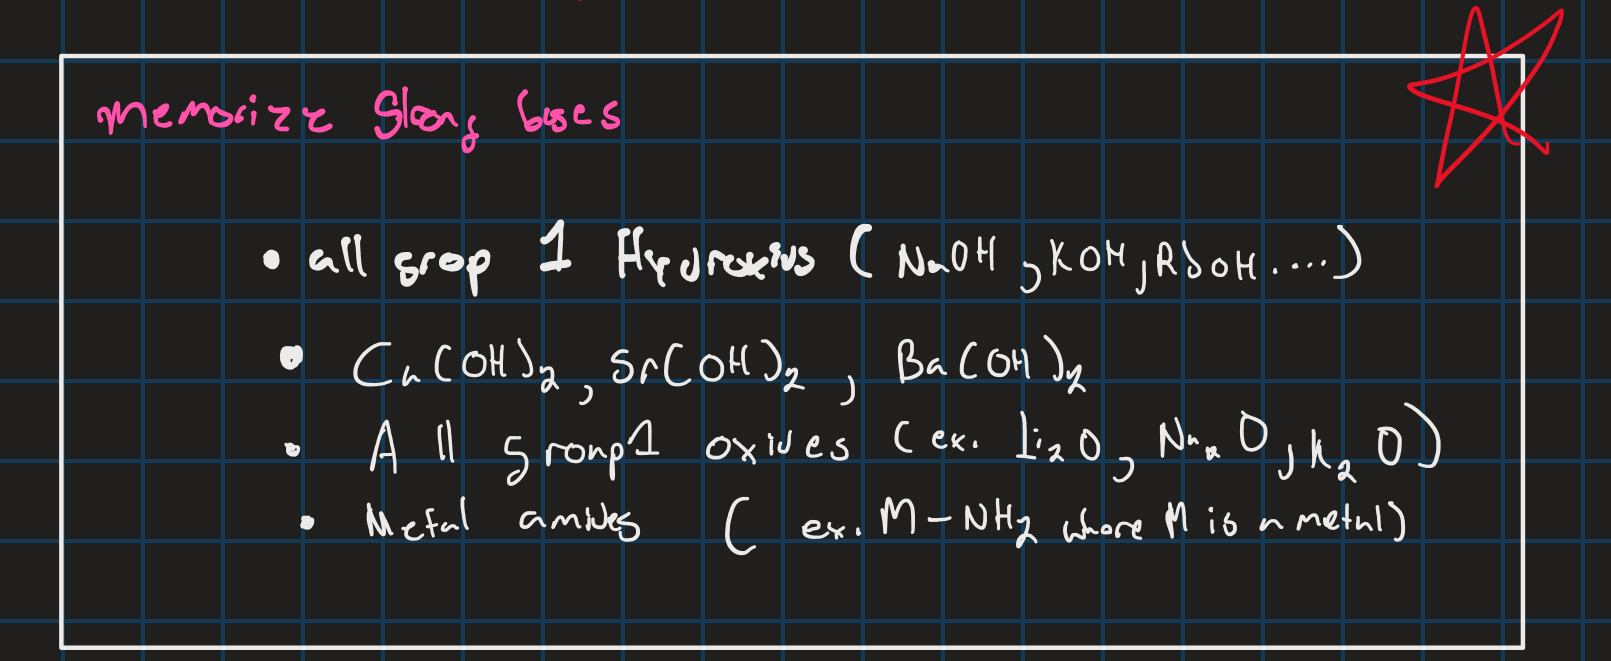 memorize Strong bases
• all grop 1 Hydroxids (NaOH, KOH, RbOH....)
• Ca(OH)2, Sr(OH)2, Ba(OH)2
• All group1 oxides (ex. li2O, Na2O, K2O)
• Metal amides (ex. M-NH2 where M is a metal)